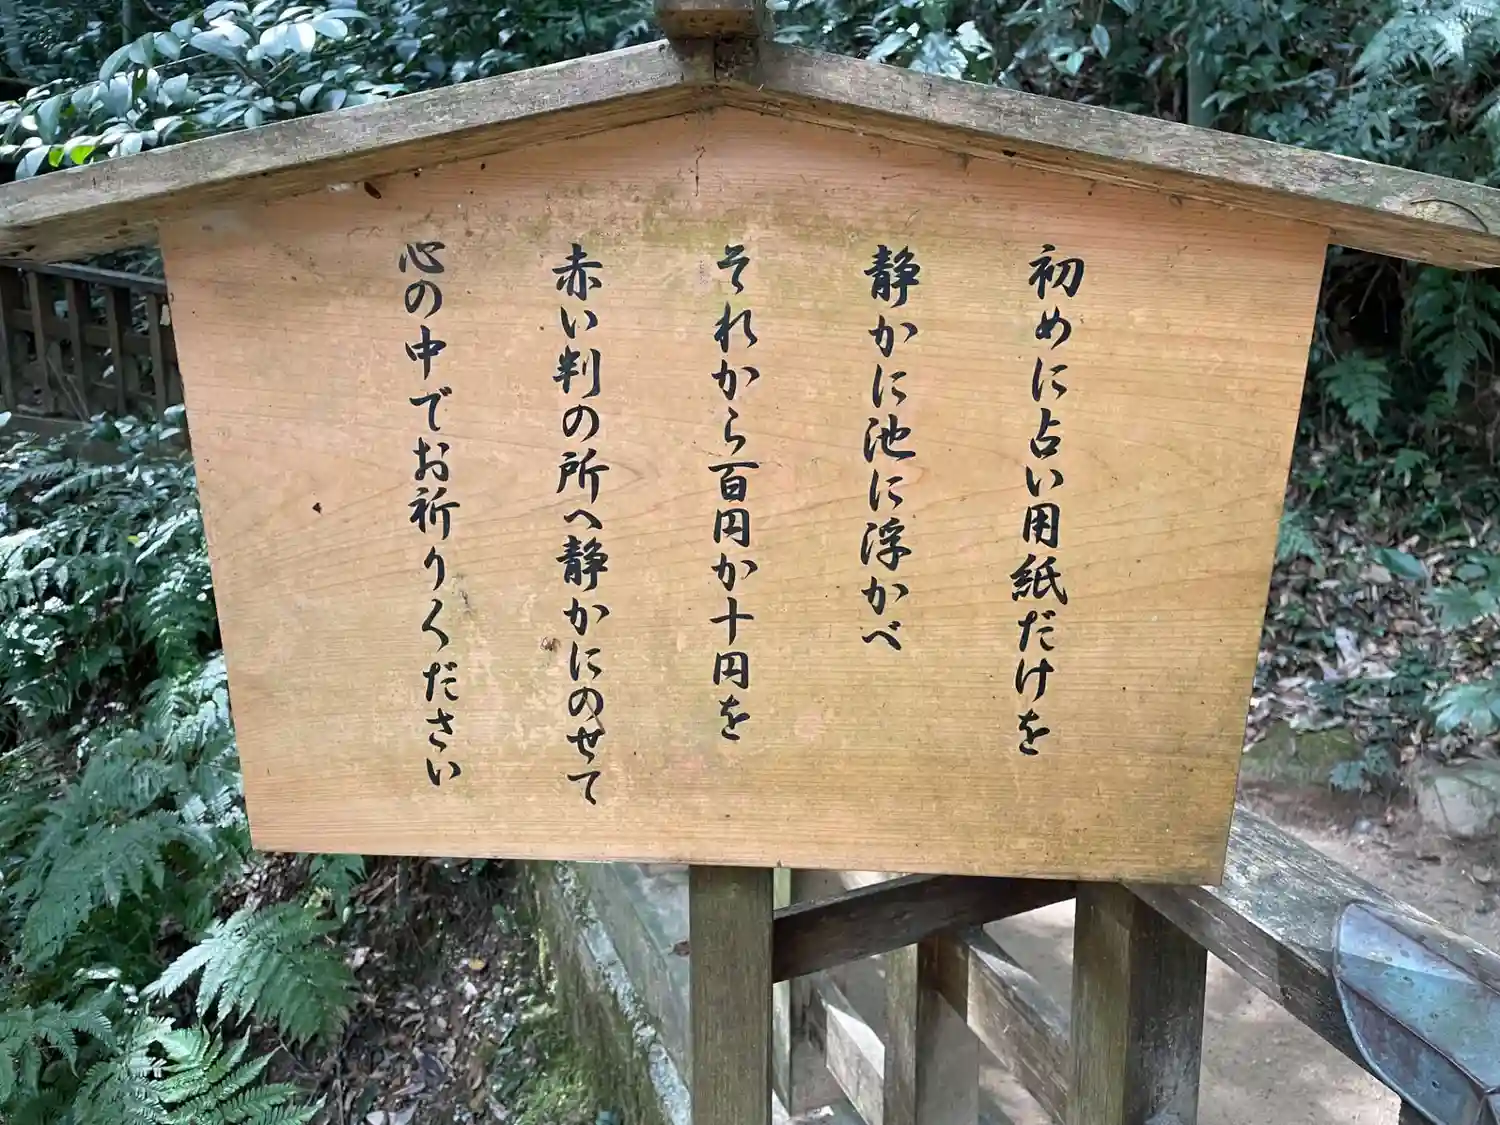 初めに占い用紙だけを
静かに池に浮かべ
それから百円か十円を
赤い判の所へ静かにのせて
心の中でお祈りください